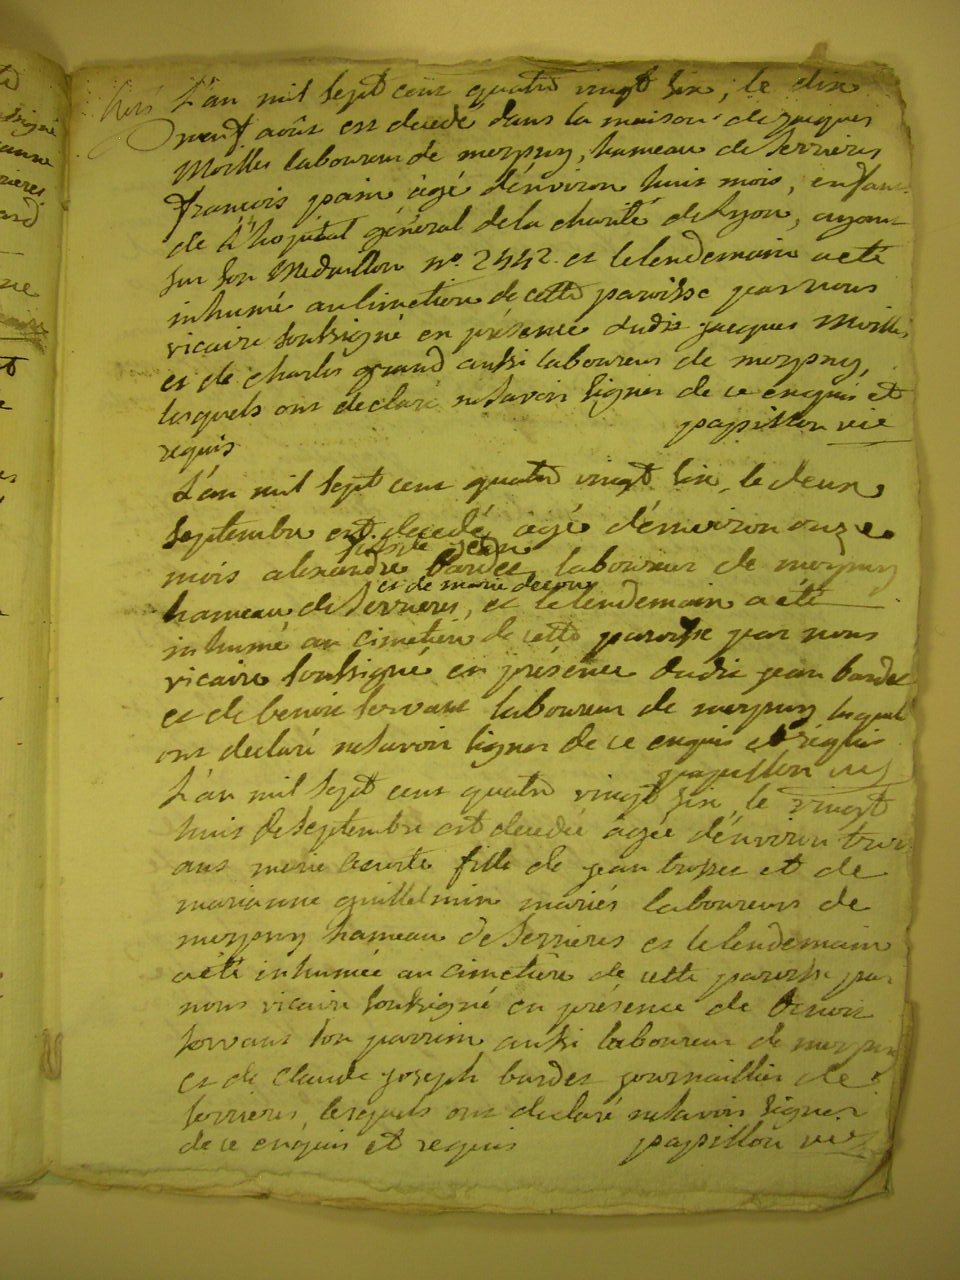 L'an mil sept cent quatre vingt six, le dix
neuf août est decedé dans la maison de jacques
Moille laboureur de meypuy, hameau de Serrieres
françois pain âgé d'environ huit mois, enfant
de l'hopital général de la charité de Lyon, ayant
sur son Medaillon n°. 2442. et le lendemain a eté
inhumé au cimetiere de cette paroisse par nous
vicaire soussigné en présence dudit jacques Moille,
et de charles grand aussi laboureur de meypuy,
lesquels ont declaré ne savoir signer de ce enquis et
requis papillon vic
L'an mil sept cent quatre vingt six, le deux
septembre est decedé âgé d'environ onze
fils de jean
mois alexandre bardet, laboureur de meypuy
et de marie
hameau de Serrieres, et le lendemain a eté
inhumé au cimetiere de cette paroisse par nous
vicaire soussigné en présence dudit jean bardet
et de benoit servant laboureur de meypuy lesquels
ont declaré ne savoir signer de ce enquis et réquis
papillon vic
L'an mil sept cent quatre vingt six, le vingt
huit de septembre est decedée âgée d'environ trois
ans marie fille de jean et de
marianne guillelmin mariés laboureurs de
meypuy hameau de Serrieres et le lendemain
a eté inhumée au cimetiere de cette paroisse par
nous vicaire soussigné en présence de benoit
servant son parrain aussi laboureur de meypuy
et de claude joseph bardet journaillier de
serrieres lesquels ont declaré ne savoir signer
de ce enquis et requis papillon vic